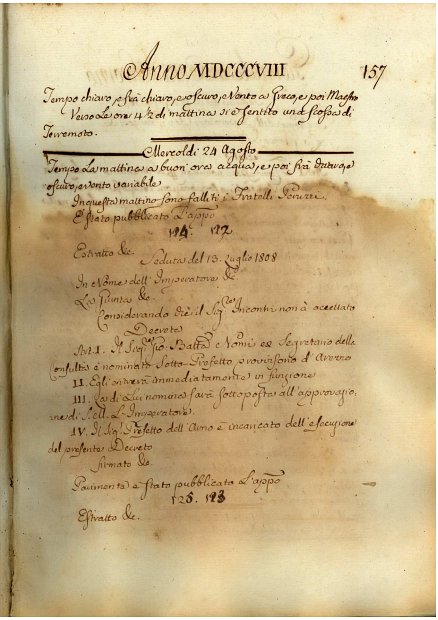 Anno MDCCCVIII 157
Tempo chiaro, e frà chiaro, e oscuro, e Vento a Greco, e poi Maestro
Verso Le ore 4 1/2 di mattina si è sentito una scossa di
Terremoto.
Mercoldì 24 Agosto
Tempo La mattina a buon'ora acqua, e poi frà chiaro, e
oscuro, e vento variabile
In questa mattina sono falliti i Fratelli Peruzzi
È stato pubblicato L'appo
124. 122
Estratto &c.
Seduta del 13. Luglio 1808
In Nome dell'Imperatore &c
La Giunta &c.
Considerando che il Sigre Incontri non à accettato
Decreta
Art. I. Il Sigr Gio. Batta Nomi ex Segretario della
Consulta è nominato Sotto-Prefetto provvisorio d'Arezzo
II. Egli entrerà immediatamente in funzione
III. La di Lui nomina sarà sottoposta all'approvazio-
ne di S. M. L'Imperatore.
IV. Il Sigr Prefetto dell'Arno è incaricato dell'esecuzione
del presente Decreto
firmato &c.
Parimente è stato pubblicato L'appo
125. 123
Estratto &c.